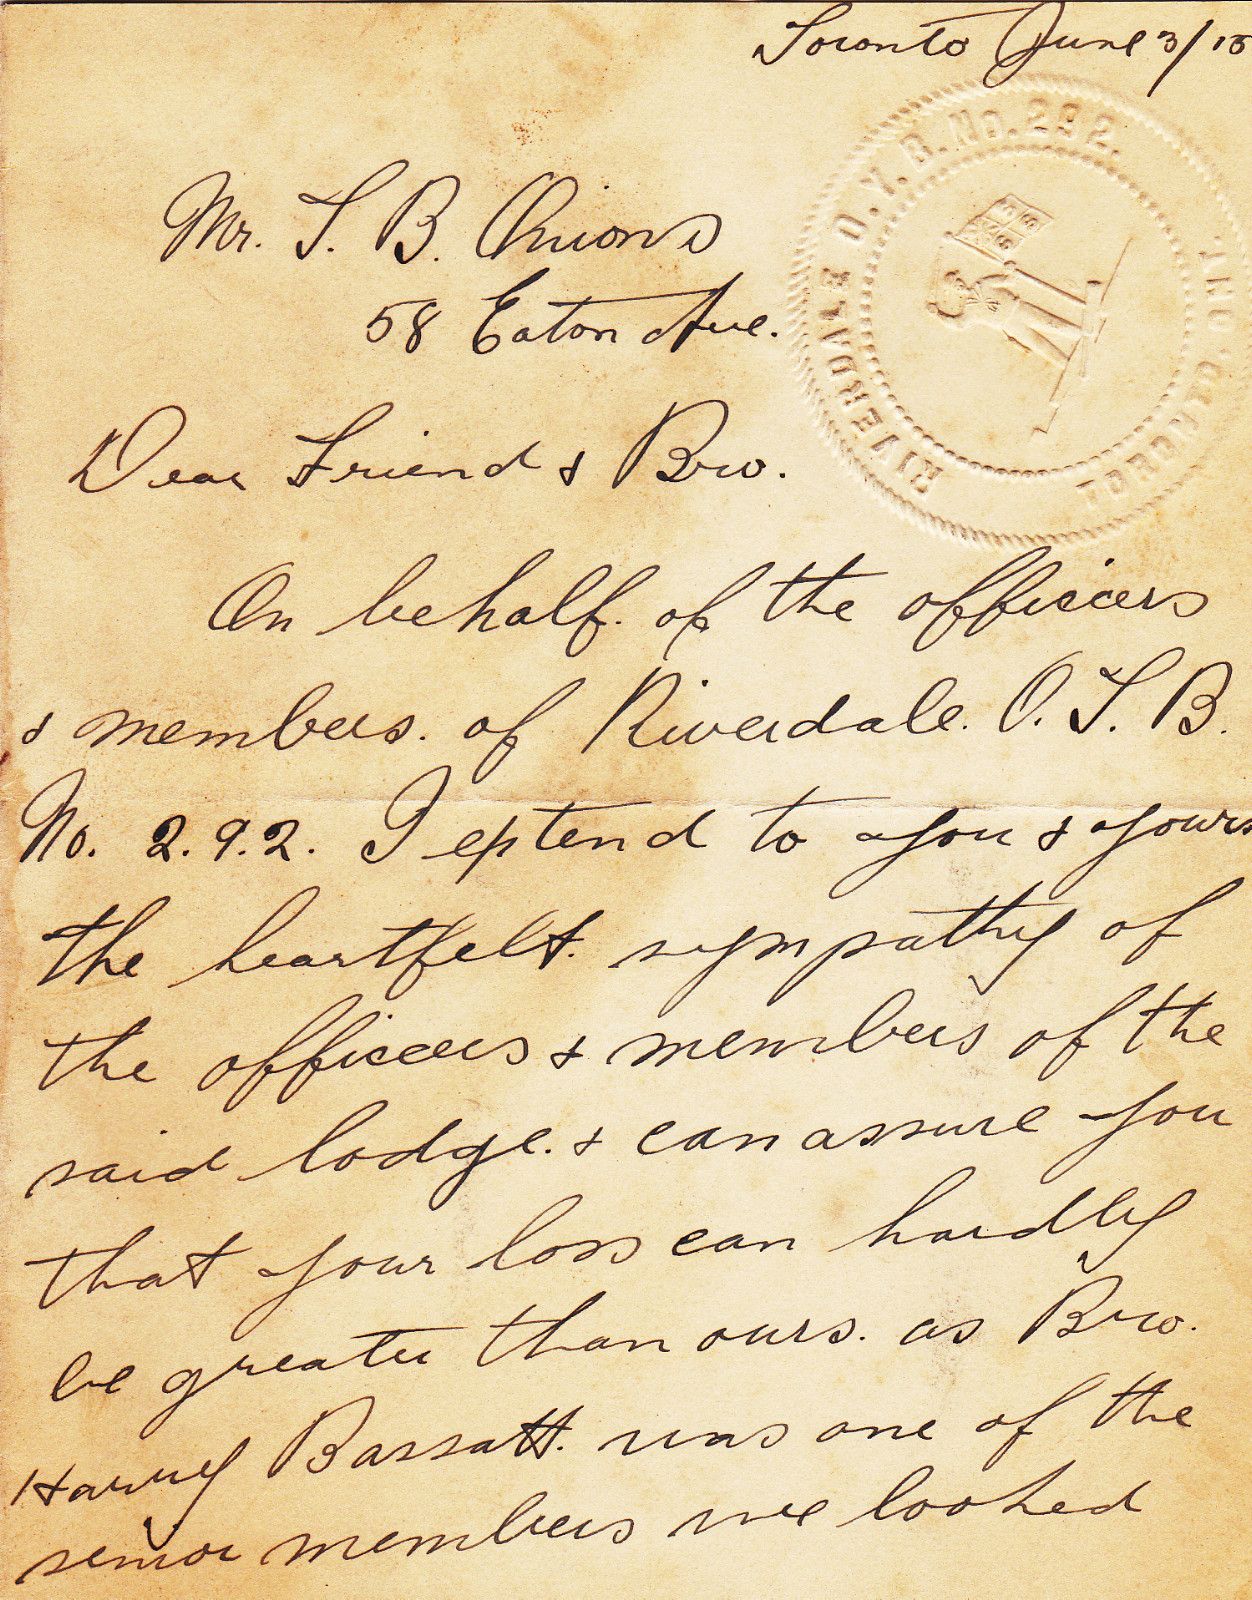 Toronto June 3/15
RIVERDALE O.Y.B. No. 292.
TORONTO, ONT.
Mr. T. B. Onions
58 Eaton Ave.
Dear Friend & Bro.
On behalf. of the officers
& members. of Riverdale. O. T. B.
No. 2.9.2. I extend to you & yours
the heartfelt. sympathy of
the officers & members of the
said lodge. & can assure you
that your loss can hardly
be greater than ours. as Bro.
Harry Bassatt. was one of the
senior members we looked